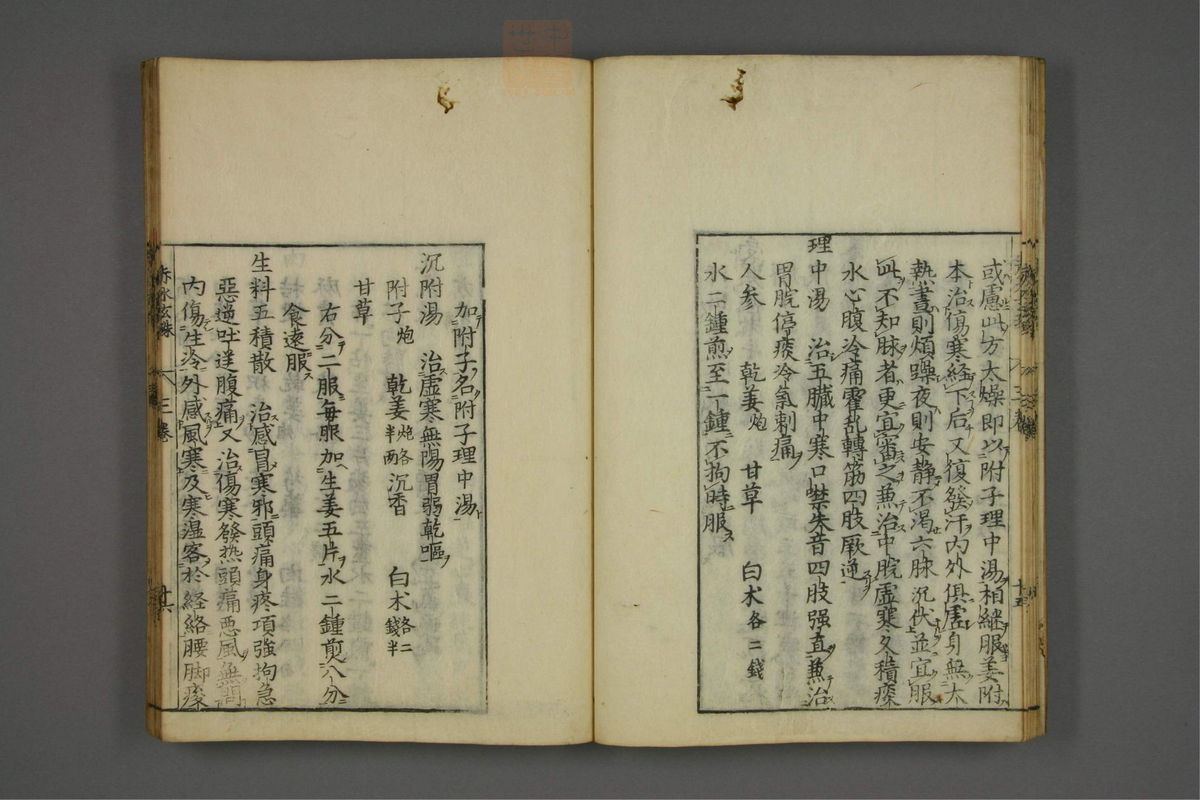 或慮此方太燥即以附子理中湯相継服姜附
本治傷寒経下后又復發汗内外俱虛身無太
熱晝則煩躁夜則安静不渴六脉沉伏並宜服
此不知脉者更宜審之兼治中脘虛寒久積痰
水心腹冷痛霍乱轉筋四肢厥逆
理中湯　治五臓中寒口噤失音四肢强直兼治
胃脘停痰冷氣刺痛
人参　乾姜炮　甘草　白术各二錢
水二鍾煎至一鍾不拘時服
加附子名附子理中湯
沉附湯　治虛寒無陽胃弱乾嘔
附子炮　乾姜炮各半两　沉香　白术各二錢半
甘草
右分二服每服加生姜五片水二鍾煎八分
食遠服
生料五積散　治感冒寒邪頭痛身疼項強拘急
惡逆吐逆腹痛又治傷寒發热頭痛悪風無問
内傷生冷外感風寒及寒濕客於経絡腰脚痠
赤水玄珠　三卷　十六